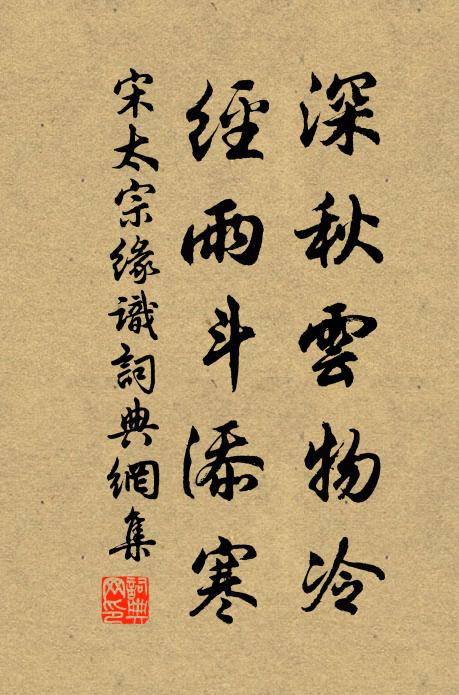 深秋雲物冷
經雨斗添寒
宋太宗緣識詞典網集
詞典
网印